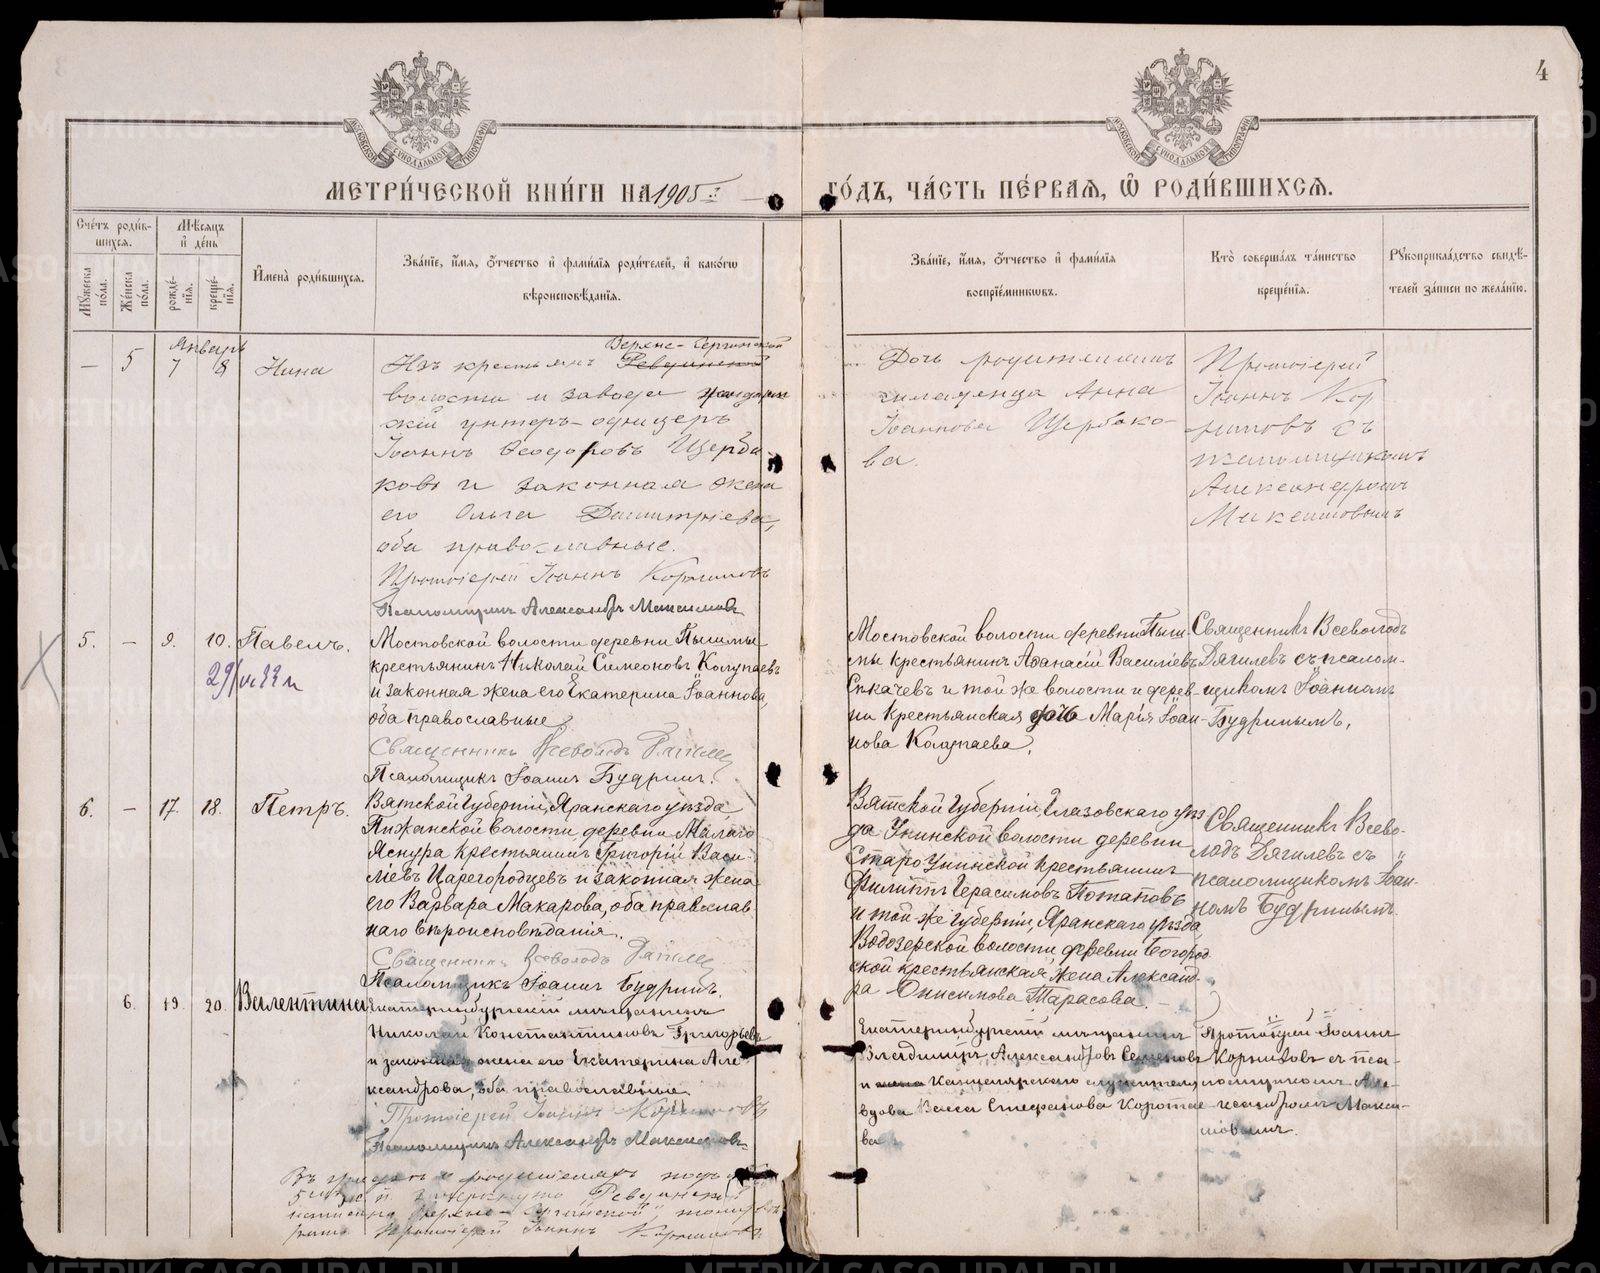 4
МЕТРИ́ЧЕСКОЙ КНИ́ГИ НА 1905 ГО́ДЪ, ЧА́СТЬ ПЕ́РВАЯ, Ѽ РОДИ́ВШИХСЯ.
Сче́тъ роди́в-
шихся.
Мꙋжеска по́ла.
Же́нска по́ла.
Мѣ́сяцъ и де́нь
рожде́-
нїя.
креще́-
нїя.
Имена̀ роди́вшихся.
Зва́нїе, и́мя, ѻ́тчество и фами́лїя роди́телей, и како́гѡ
вѣроисповѣ́данїя.
Зва́нїе, и́мя, ѻ́тчество и фами́лїя
воспрїе́мникѡвъ.
Кто̀ соверша́лъ та́инство
креще́нїя.
Рꙋкоприкла́дство свидѣ́-
телей за́писи по жела́нїю.
Январь
– 5 7 8 Нина
Верхне-Сергинской
Изъ крестьянъ Ревдинской
волости и завода жандарм
скій унтеръ-офицеръ
Іоаннъ Ѳеодоровъ Щерба
ковъ и законная жена
его Ольга Димитріева,
оба православные.
Протоіерей Іоаннъ Корниловъ
Псаломщикъ Александръ Максимовъ
Дочь родителямъ
младенца Анна
Іоаннова Щербако-
ва.
Протоіерей
Іоаннъ Кор
ниловъ съ
псаломщикомъ
Александромъ
Максимовымъ
5. – 9. 10. Павелъ.
Мостовской волости деревни Пышмы
крестьянинъ Николай Симеоновъ Колупаевъ
и законная жена его Екатерина Іоаннова,
оба православные
Священникъ Всеволодъ Дягилев
Псаломщикъ Іоаннъ Будринъ.
Мостовской волости деревни Пыш-
мы крестьянинъ Аѳанасій Василіевъ
Сткачевъ и той же волости и дерев-
ни крестьянская дочь Марія Іоан-
нова Колупаева.
Священникъ Всеволодъ
Дягилевъ съ псалом-
щикомъ Іоанномъ
Будринымъ.
6. – 17. 18. Петръ.
Вятской Губерніи, Яранскаго уѣзда
Пижанской волости деревни Малаго
Яснура крестьянинъ Григорій Васи-
ліевъ Царегородцевъ и законная жена
его Варвара Макарова, оба православ
наго вѣроисповѣданія.
Священникъ Всеволодъ Дягилев
Псаломщикъ Іоаннъ Будринъ.
Вятской Губерніи, Глазовскаго уѣз
да Унинской волости деревни
Староунинской крестьянинъ
Филиппъ Герасимовъ Потаповъ
и той же Губерніи, Яранскаго уѣзда
Водозерской волости деревни Богород
ской крестьянская жена Александ-
ра Онисимова Тарасова
Священникъ Всево-
лодъ Дягилевъ съ
псаломщикомъ Іоан-
номъ Будринымъ.
6. 19. 20. Валентина
Екатеринбургскій мѣщанинъ
Николай Константиновъ Григорьевъ
и законная жена его Екатерина Але-
ксандрова, оба православные
Протоіерей Іоаннъ Корниловъ
Псаломщикъ Александръ Максимовъ
Екатеринбургскій мѣщанинъ
Владиміръ Александровъ Семеновъ
и жена Канцелярскаго служителя
вдова Васса Стефанова Коротае
ва
Протоіерей Іоаннъ
Корниловъ съ пса-
ломщикомъ Але-
ксандромъ Макси-
мовымъ.
Въ графѣ о родителяхъ подъ
5 зачеркнуто „Ревдинской
написано „Верхне-Сергинской",
Протоіерей Іоаннъ Корниловъ
METRIKI.GASO-URAL.RU